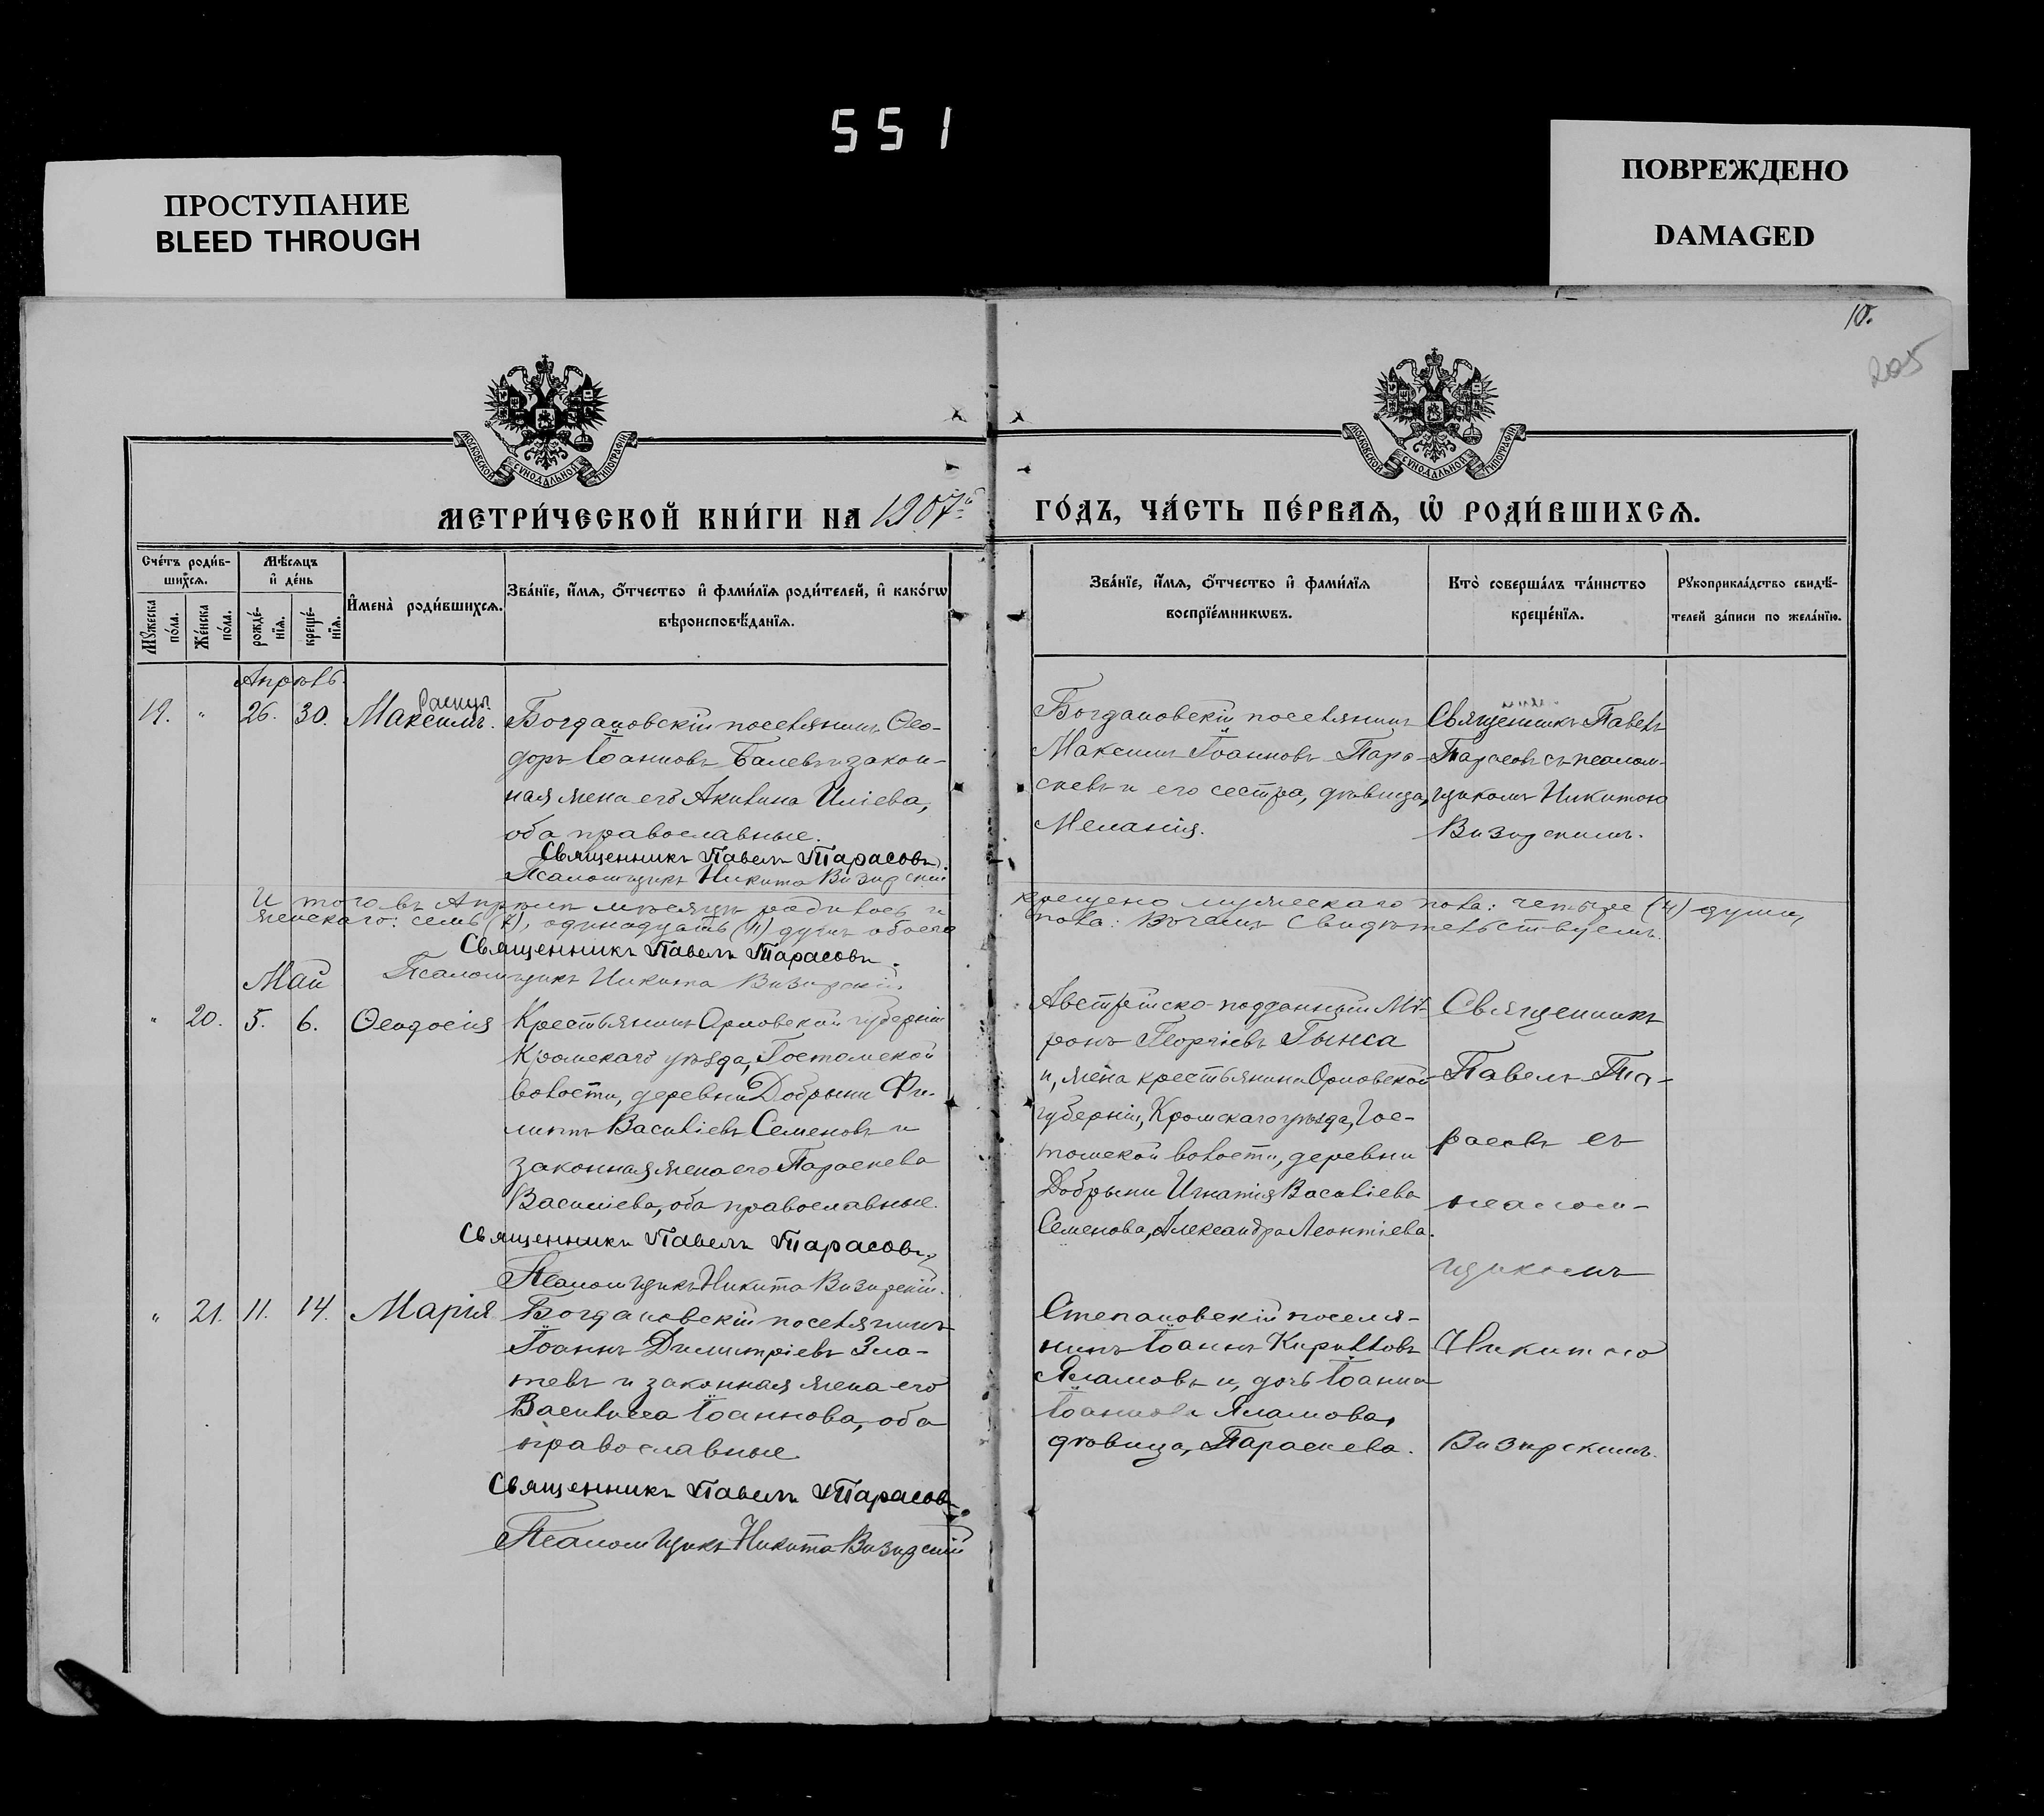 551
ПРОСТУПАНИЕ
BLEED THROUGH
ПОВРЕЖДЕНО
DAMAGED
10.
205
МОСКОВСКОЙ СѴНОДАЛЬНОЙ ТИПОГРАФІИ
МОСКОВСКОЙ СѴНОДАЛЬНОЙ ТИПОГРАФІИ
МЕТРИ́ЧЕСКОЙ КНИ́ГИ НА 1907й
ГО́ДЪ, ЧА́СТЬ ПЕ́РВАѦ, Ѡ҆ РОДИ́ВШИХСѦ.
Сче́тъ роди́в-
шихсѧ.
Мѣ́сѧцъ
и҆ де́нь
Мꙋ́жеска по́ла.
Же́нска по́ла.
рожде́-
нїѧ.
креще́-
нїѧ.
И҆мена̀ роди́вшихсѧ.
Зва́нїе, и҆́мѧ, ѻ҆́тчество и҆ фами́лїѧ роди́телей, и҆ како́гѡ
вѣроисповѣ́данїѧ.
Зва́нїе, и҆́мѧ, ѻ҆́тчество и҆ фами́лїѧ
воспрїе́мникѡвъ.
Кто̀ соверша́лъ та́инство
креще́нїѧ.
Рꙋкоприкла́дство свидѣ́-
телей за́писи по жела́нїю.
Апрѣль.
19. " 26. 30. Максимъ.
Богдановскій поселянинъ Ѳео-
доръ Іоанновъ Балевъ и закон-
ная жена его Акилина Иліева,
оба православные.
Священникъ Павелъ Тарасовъ.
Псаломщикъ Никита Визирскій
Богдановскій поселянинъ
Максимъ Іоанновъ Пара-
скевъ и его сестра, дѣвица,
Меланія.
Священникъ Павелъ
Тарасовъ съ псалом-
щикомъ Никитою
Визирскимъ.
Итого въ Апрѣлѣ мѣсяцѣ родилось и крещено мужескаго пола: четыре (4) души,
женскаго: семь (7), одинадцать (11) душъ обоего пола: Въ чемъ Свидѣтельствуемъ.
Священникъ Павелъ Тарасовъ.
Псаломщикъ Никита Визирскій.
Май
" 20. 5. 6. Ѳеодосія
Крестьянинъ Орловской губерніи
Кромскаго уѣзда, Гостомской
волости, деревни Добрыни Фи-
липпъ Василіевъ Семеновъ и
законная жена его Параскева
Василіева, оба православные.
Священникъ Павелъ Тарасовъ.
Псаломщикъ Никита Визирскій.
Австрійско-подданный Ми-
ронъ Георгіевъ Гынса
и, жена крестьянина Орловской
губерніи, Кромскаго уѣзда, Гос-
томской волости, деревни
Добрыни Игнатія Василіева
Семенова, Александра Леонтіева.
Священникъ
Павелъ Та-
расовъ съ
псалом-
щикомъ
Никитою
Визирскимъ.
" 21. 11. 14. Марія
Богдановскій поселянинъ
Іоаннъ Димитріевъ Зла-
тевъ и законная жена его
Василисса Іоаннова, оба
православные
Священникъ Павелъ Тарасовъ.
Псаломщикъ Никита Визирскій
Степановскій поселя-
нинъ Іоаннъ Кирилловъ
Яламовъ и, дочь Іоанна
Іоаннова Яламова,
дѣвица, Параскева.